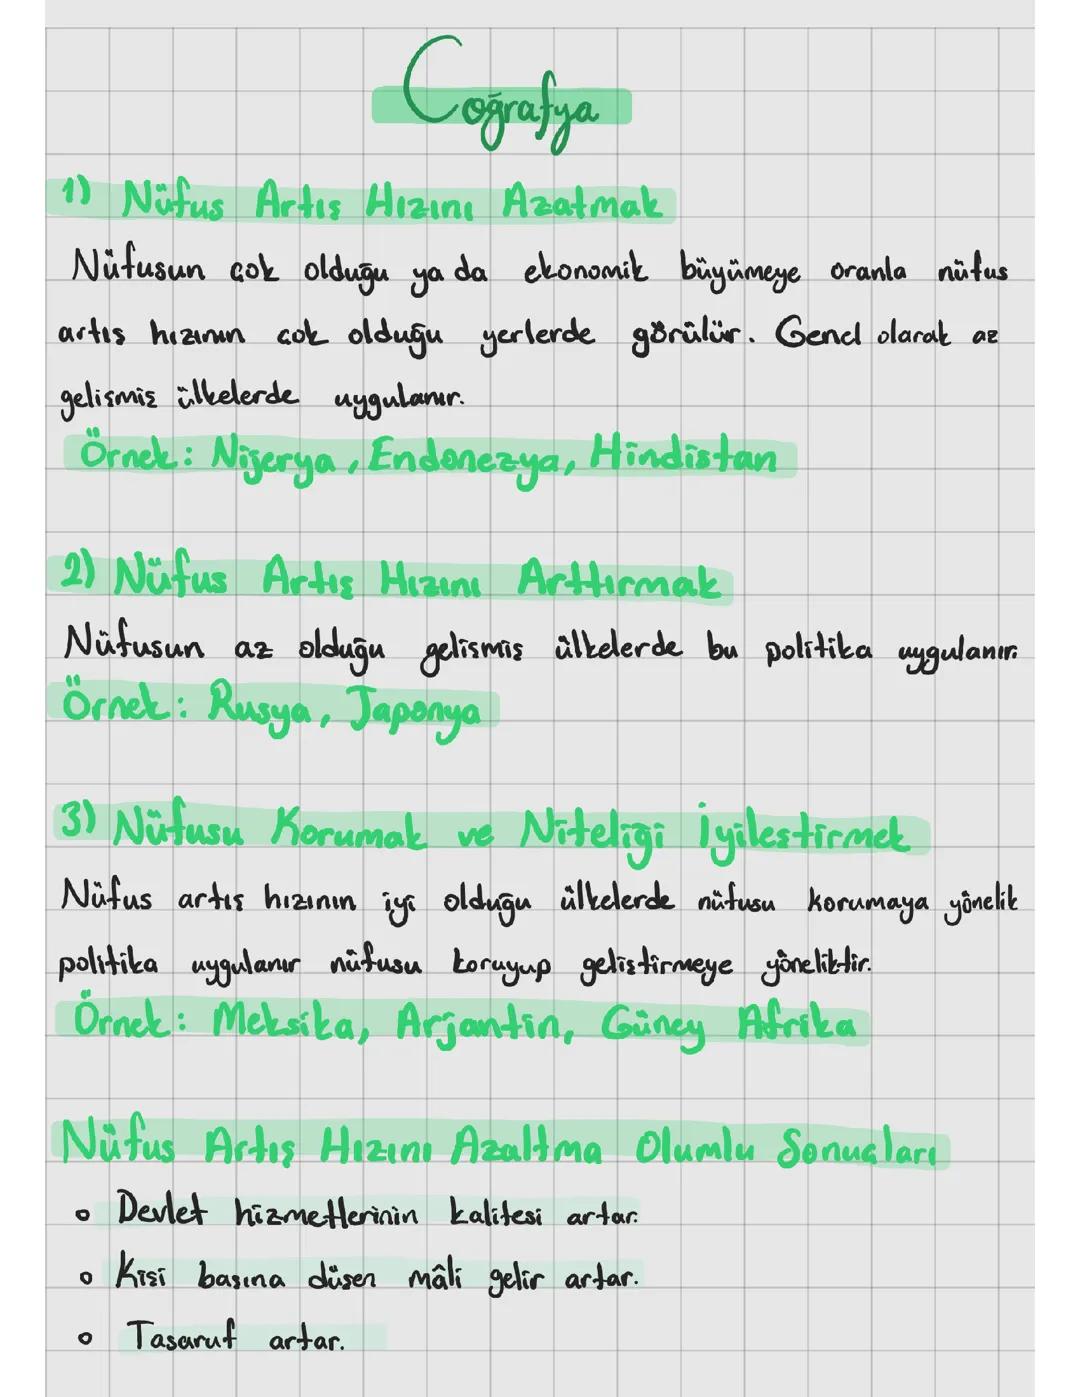 Coğrafya
1) Nüfus Artış Hızını Azatmak
Nüfusun çok olduğu ya da ekonomik büyümeye oranla nüfus
artış hızının çok olduğu yerlerde görülür. Genel olarak az
gelişmiş ülkelerde uygulanır.
Örnek: Nijerya, Endonezya, Hindistan
2) Nüfus Artış Hızını Arttırmak
Nüfusun az olduğu gelişmiş ülkelerde bu politika uygulanır.
Örnek: Rusya, Japonya
3) Nüfusu Korumak ve Niteliği İyileştirmek
Nüfus artış hızının iyi olduğu ülkelerde nüfusu korumaya yönelik
politika uygulanır nüfusu koruyup geliştirmeye yöneliktir.
Örnek: Meksika, Arjantin, Güney Afrika
Nüfus Artış Hızını Azaltma Olumlu Sonuçları
• Devlet hizmetlerinin kalitesi artar.
• Kişi başına düşen mâli gelir artar.
• Tasaruf artar.